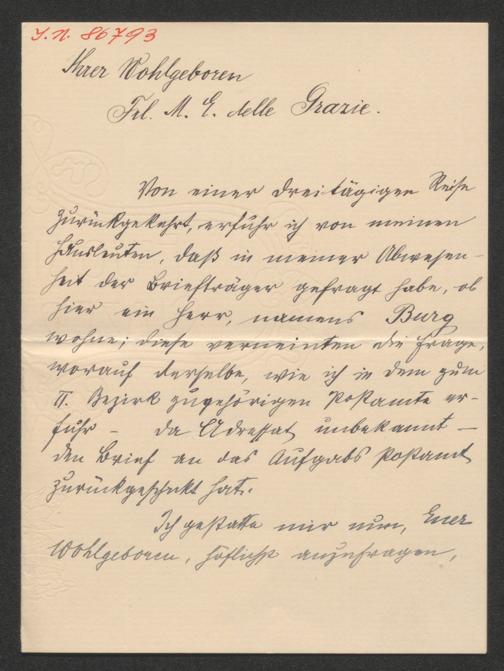 J. N. 86793
Ihrer Wohlgeboren
Frl. M. E. delle Grazie.
Von einer dreitägigen Reise
zurückgekehrt, erfuhr ich von meinen
Hausleuten, daß in meiner Abwesen-
heit der Briefträger gefragt habe, ob
hier ein Herr, namens Burg
wohne; diese verneinten die Frage,
worauf derselbe, wie ich in dem zum
II. Bezirk zugehörigen Postamte er-
fuhr – da Adressat unbekannt –
den Brief an das Aufgabs Postamt
zurückgeschickt hat.
Ich gestatte mir nun, Euer
Wohlgeboren, höflichst anzufragen,